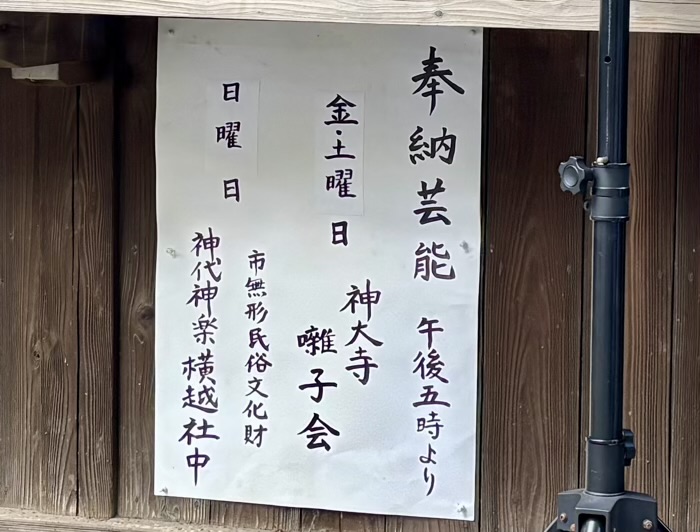 奉納芸能 午後五時より
金・土曜日
神大寺
囃子会
日曜日
市無形民俗文化財
神代神楽横越社中